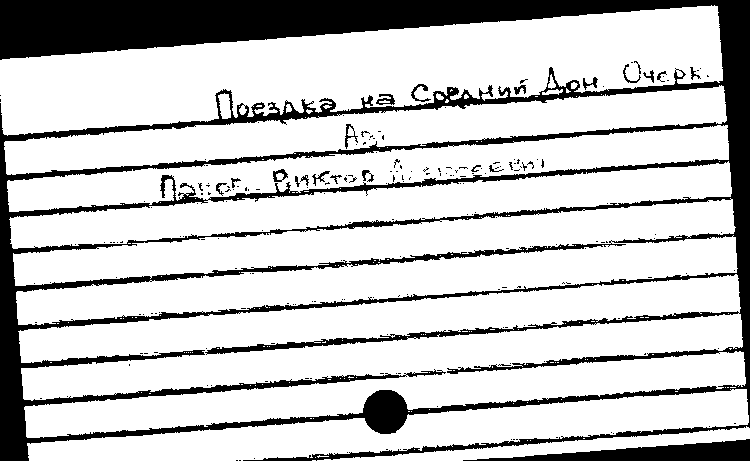 Поездка на Средний Дон. Очерк.
Авт.
Панов, Виктор Алексеевич